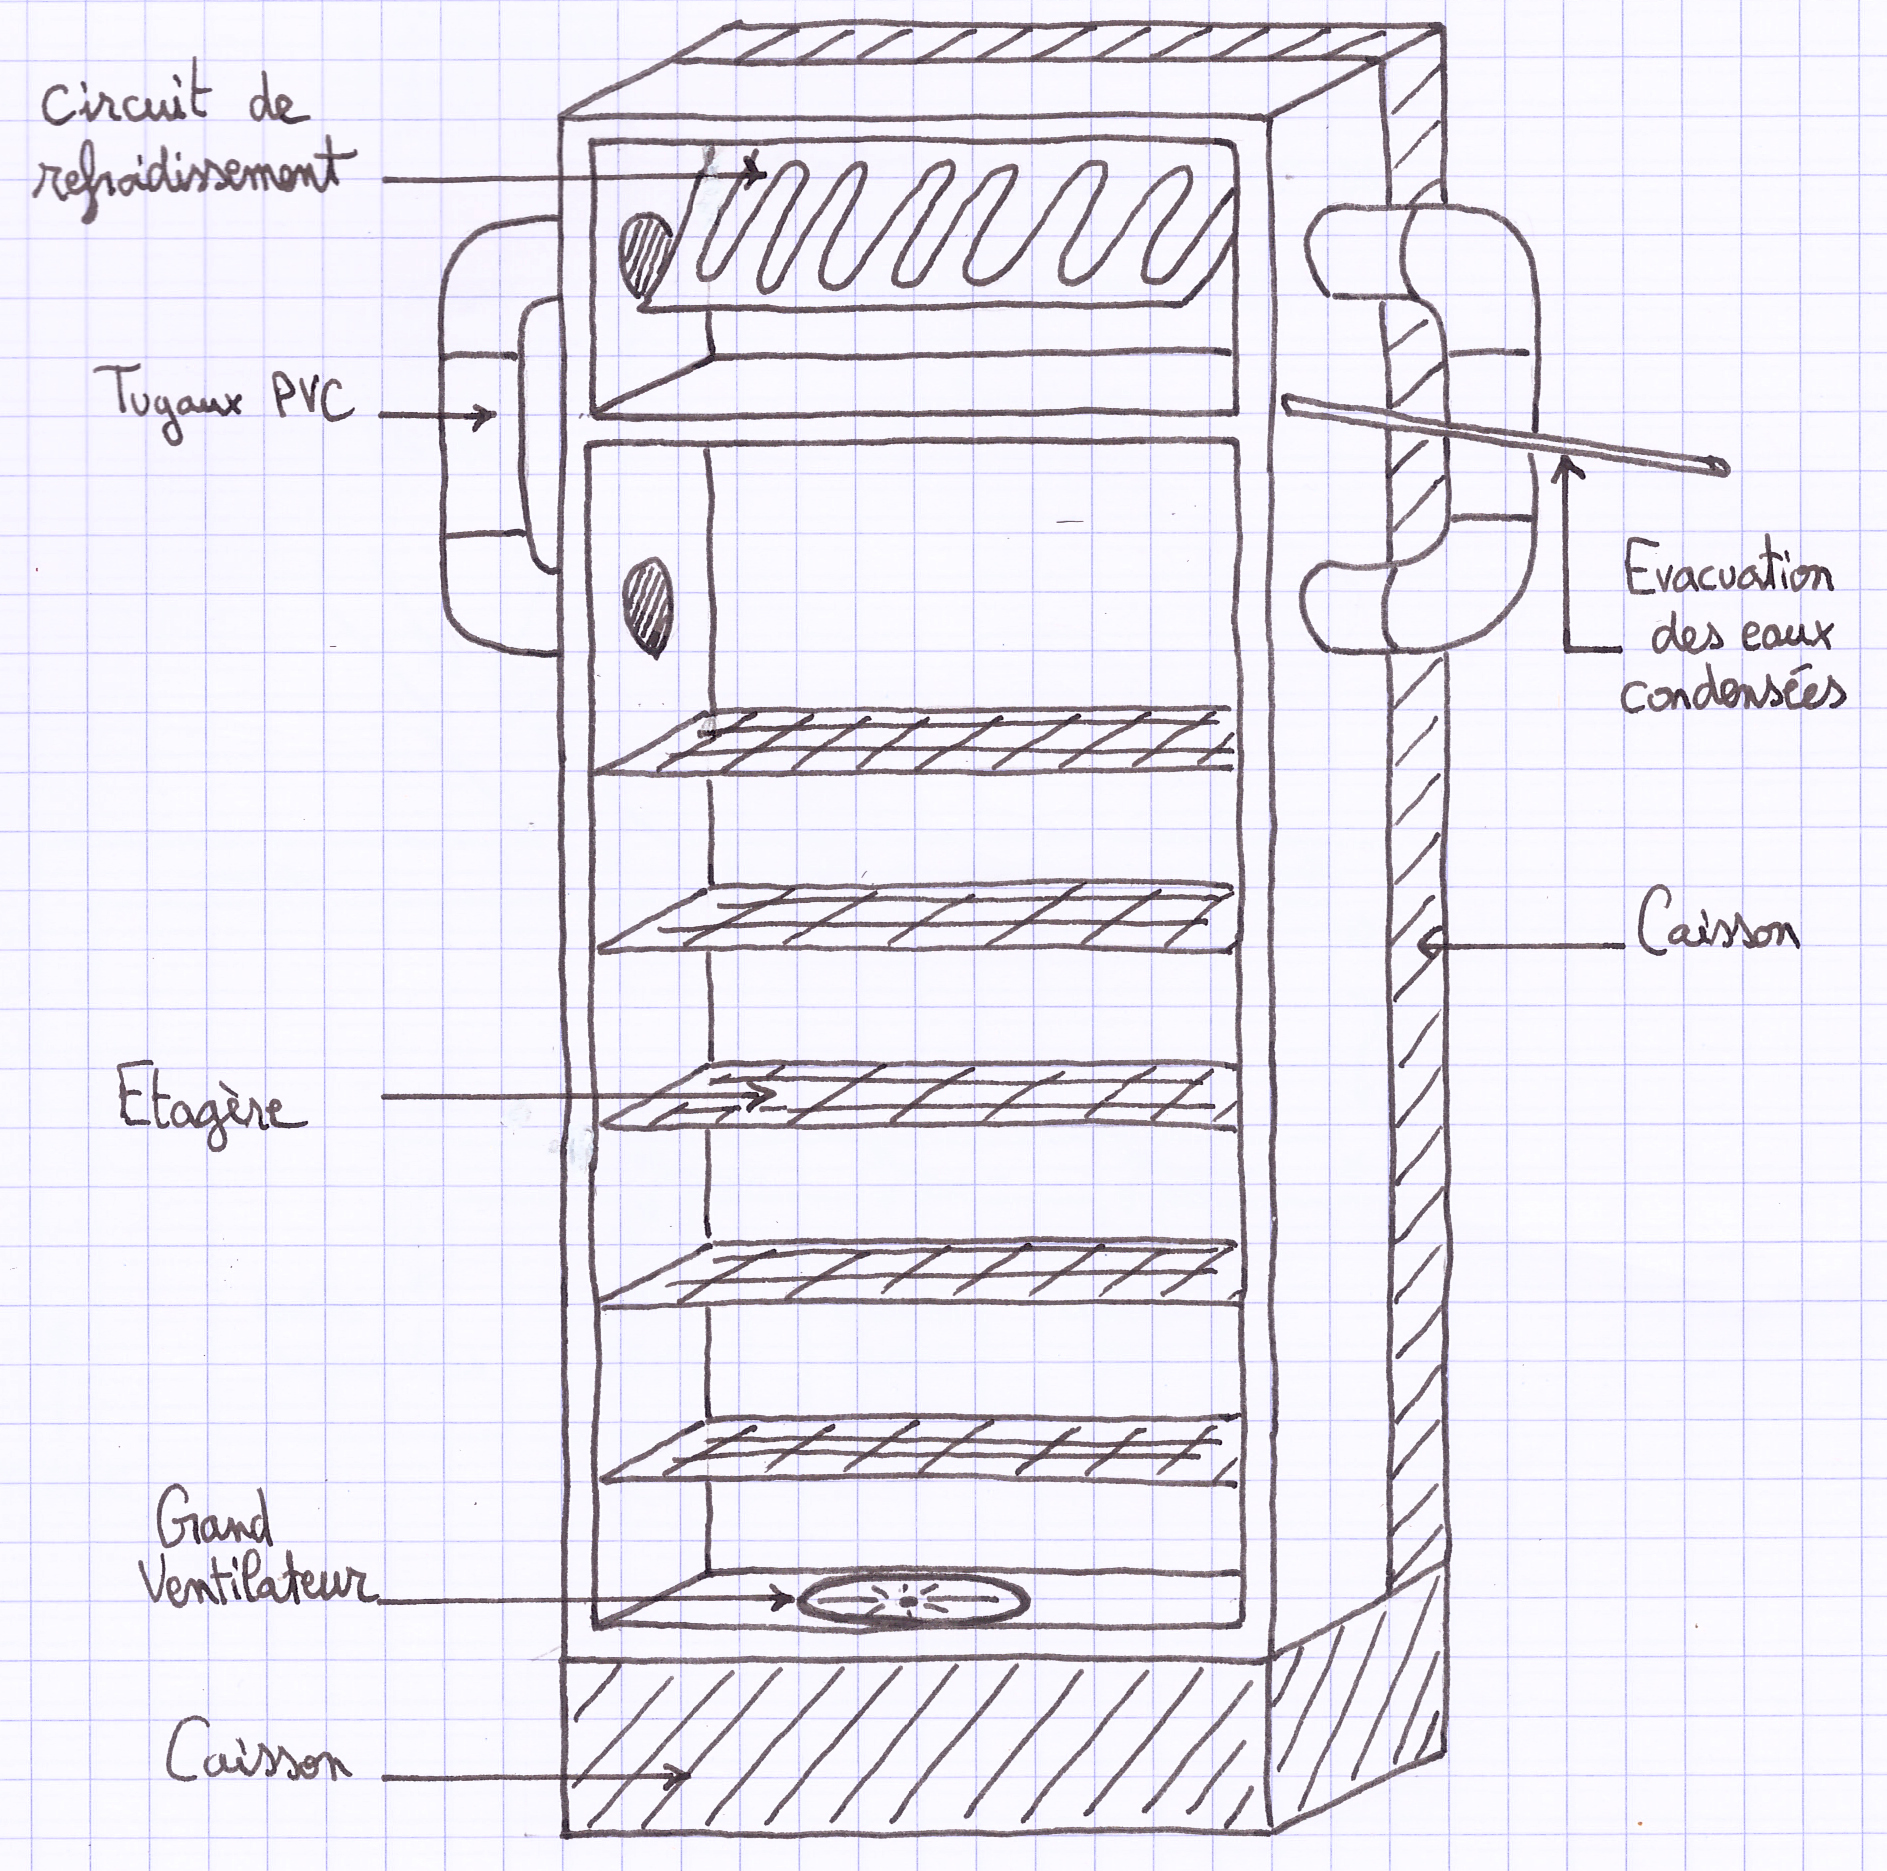 Circuit de
refroidissement
Tuyaux PVC
Evacuation
des eaux
condensées
Caisson
Etagère
Grand
Ventilateur
Caisson